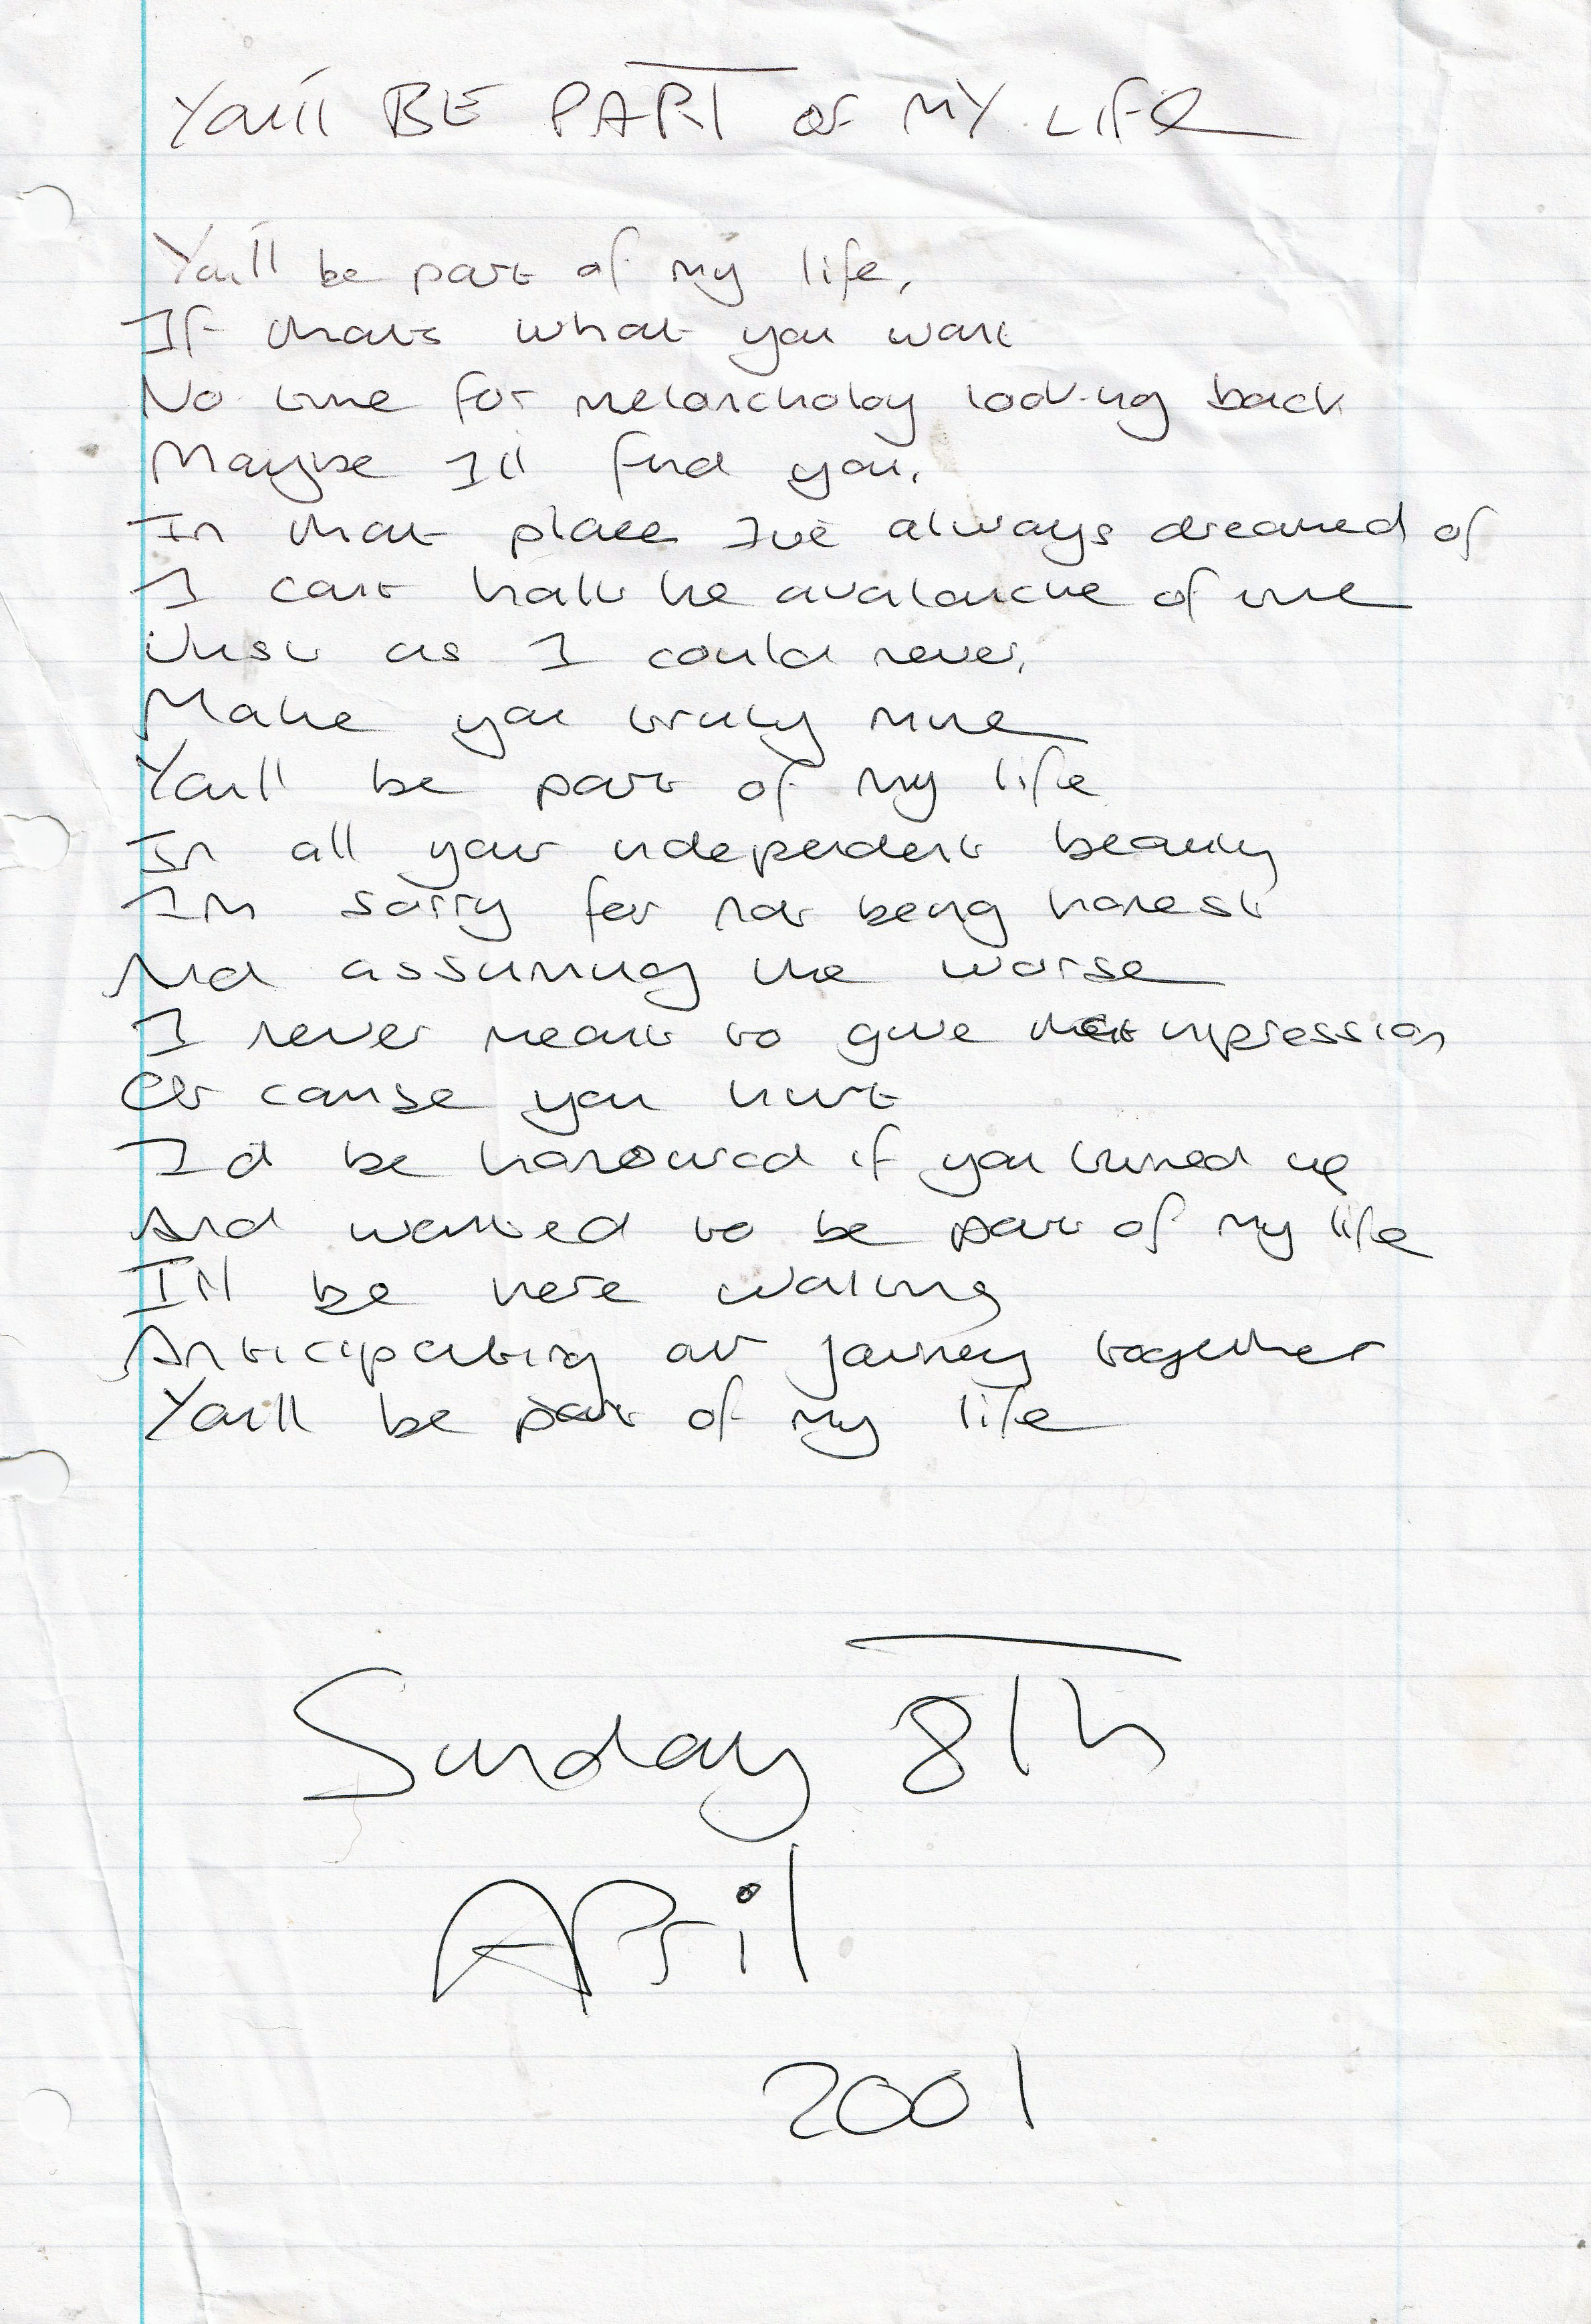 You'll BE PART OF MY LIFE
You'll be part of my life,
If thats what you want
No time for melancholoy looking back
Maybe I'll find you,
In that place I've always dreamed of
I cant halt the avalanche of time
Just as I could never,
Make you truly mine
You'll be part of my life
In all your independent beauty
Im sorry for not being honest
And assuming the worse
I never meant to give that impression
Or cause you hurt
Id be honoured if you turned up
And wanted to be part of my life
I'll be here waiting
Anticipating our journey together
You'll be part of my life
Sunday 8Th
APril
2001